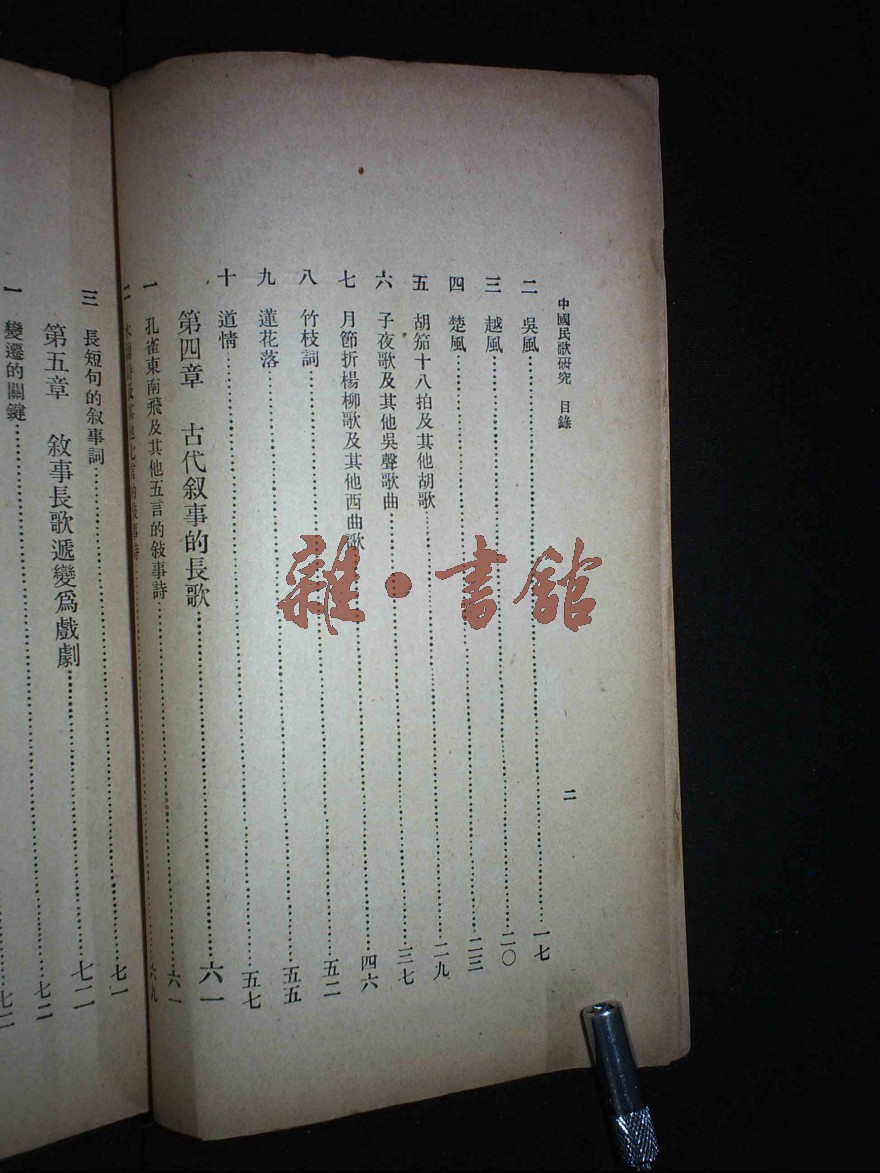 中國民歌硏究 目錄
二
二 吳風 一七
三 越風 二〇
四 楚風 二三
五 胡笳十八拍及其他胡歌 二九
六 子夜歌及其他吳聲歌曲 三七
七 月節折楊柳歌及其他西曲歌 四六
八 竹枝詞 五二
九 蓮花落 五五
十 道情 五七
第四章 古代叙事的長歌 六一
一 孔雀東南飛及其他五言的敍事詩 六一
二 六九
三 長短句的叙事詞 七一
第五章 敍事長歌遞變爲戲劇 七二
一 變遷的關鍵 七二
雜·書館